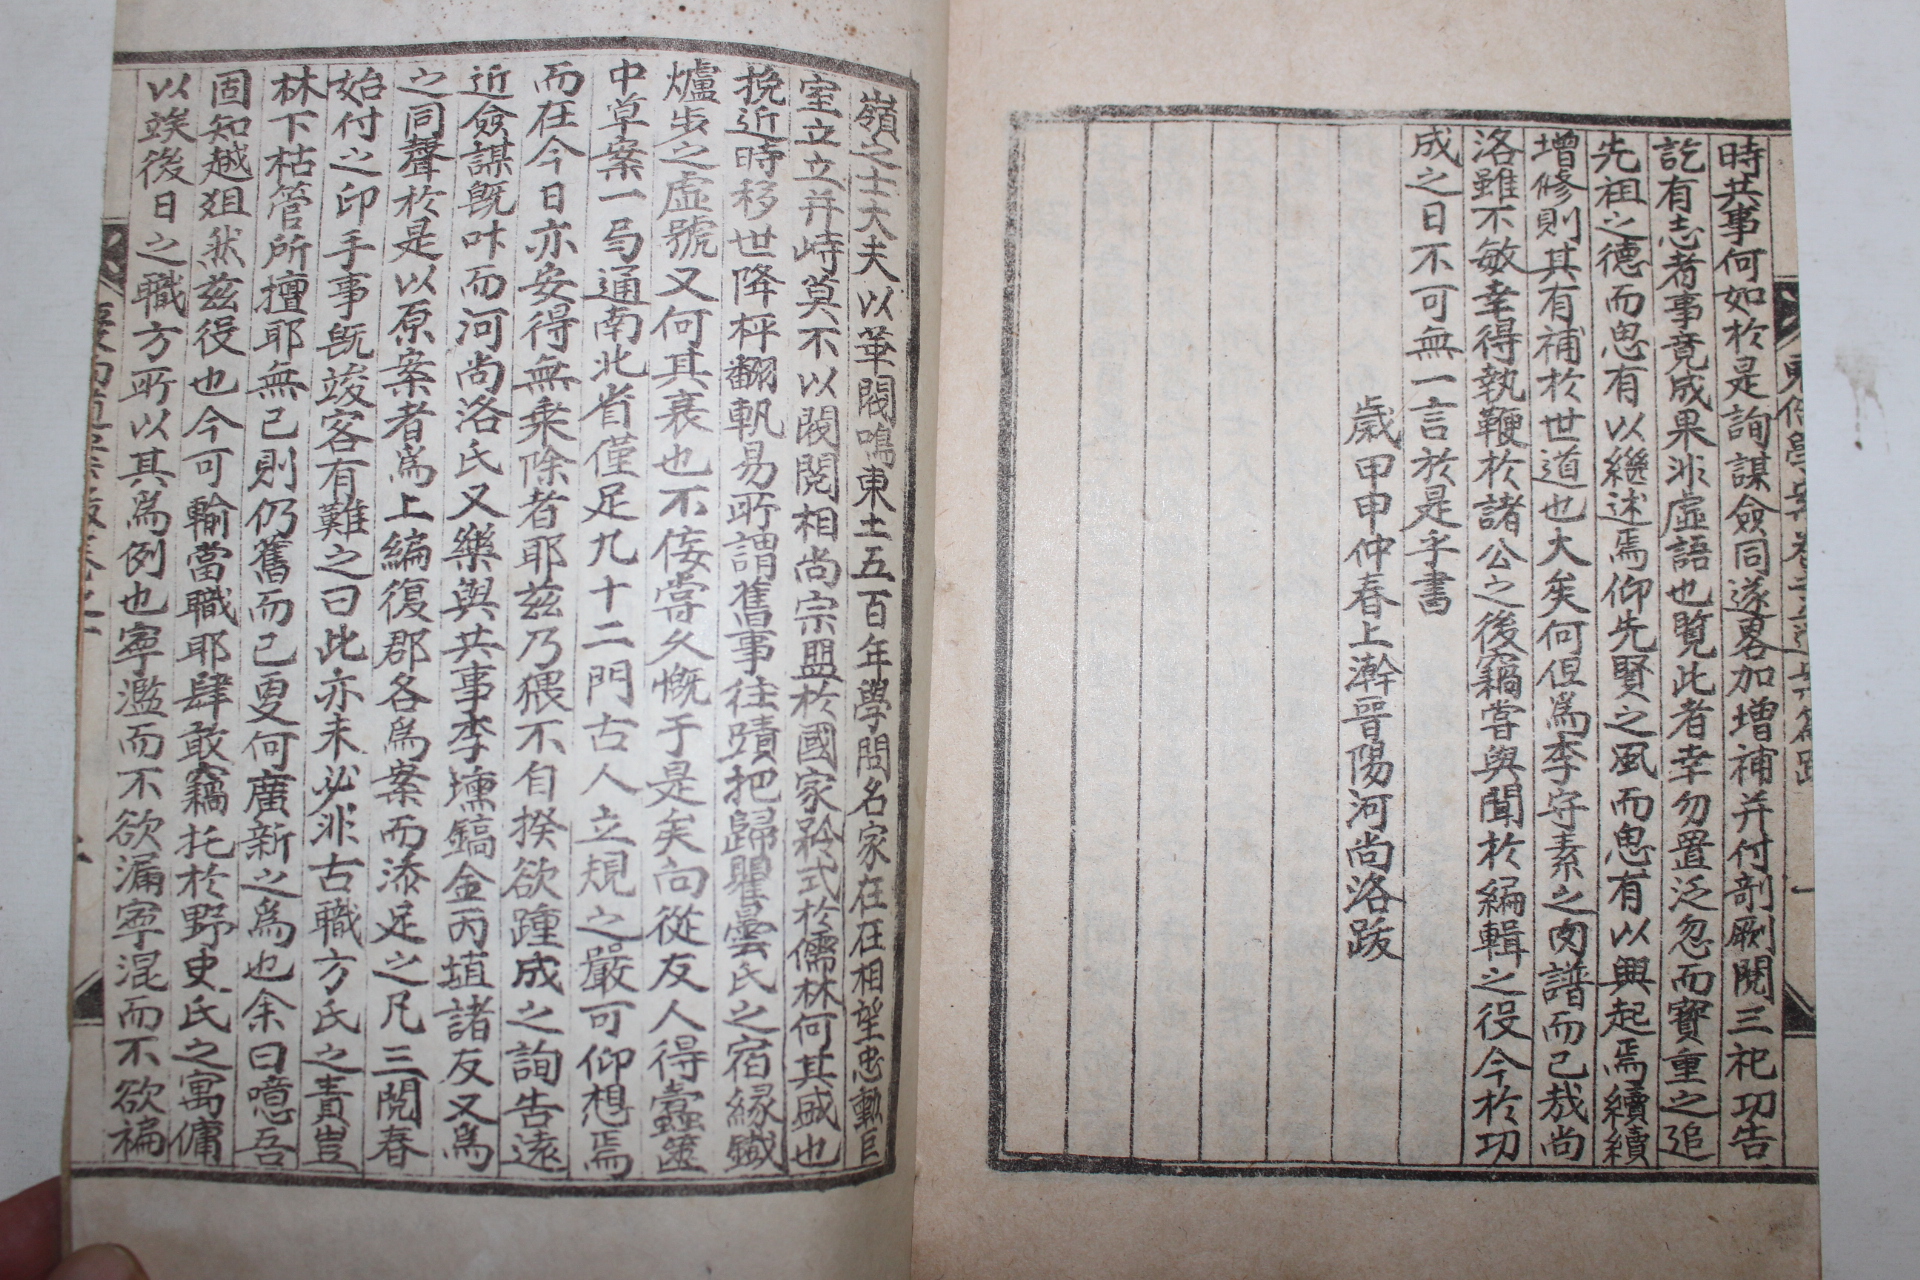 時共事何如於是詢謀僉同遂畧加增補并付剞劂閱三祀功告
訖有志者事竟成果非虛語也覧此者幸勿置泛忽而寶重之追
先祖之德而思有以繼述焉仰先賢之風而思有以興起焉續續
增修則其有補於世道也大矣何但爲李守素之肉譜而已哉尚
洛雖不敏幸得執鞭於諸公之後竊嘗與聞於編輯之役今於功
成之日不可無一言於是乎書
歲甲申仲春上澣晉陽河尚洛跋
嶺之士大夫以華閥鳴東土五百年學問名家在在相望忠勳巨
室立立并峙莫不以閥閱相尚宗盟於國家矜式於儒林何其盛也
挽近時移世降枰翻軌易所謂舊事往蹟把歸瞿曇氏之宿緣鐵
爐步之虛號又何其衰也不侫嘗久慨于是矣向從友人得蠹篋
中草案一局通南北省僅足九十二門古人立規之嚴可仰想焉
而在今日亦安得無乘除者耶兹乃猥不自揆欲踵成之詢告遠
近僉謀旣叶而河尚洛氏又樂與共事李壎鎬金丙埴諸友又爲
之同聲於是以原案者爲上編復郡各爲案而添足之凡三閱春
始付之印手事旣竣客有難之曰此亦未必非古職方氏之責豈
林下枯管所擅耶無已則仍舊而已更何廣新之爲也余曰噫吾
固知越狙然兹役也今可輸當職耶肆敢竊托於野史氏之寓傭
以竢後日之職方所以其爲例也寧濫而不欲漏寧混而不欲褊